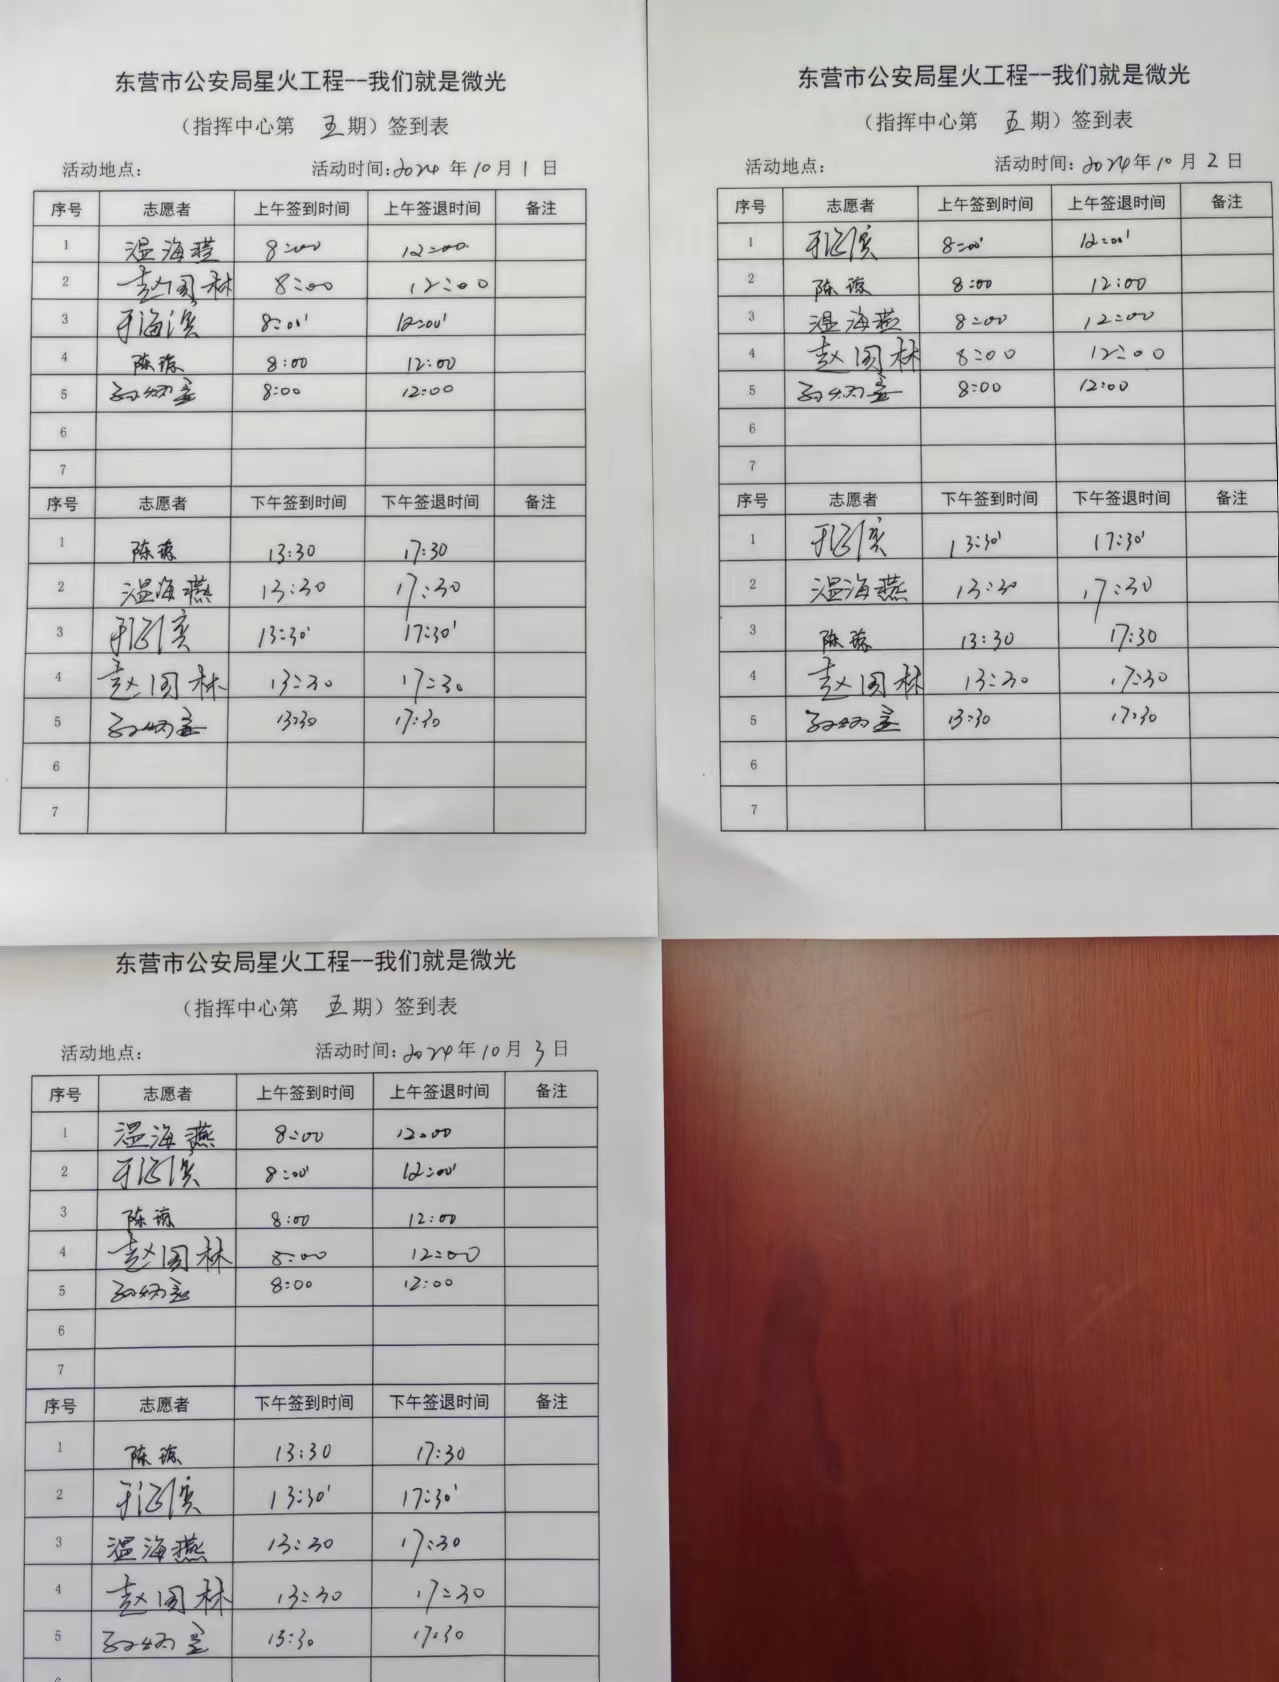 东营市公安局星火工程--我们就是微光
（指挥中心第 五 期）签到表
活动地点： 活动时间：2024 年 10 月 1 日
序号 志愿者 上午签到时间 上午签退时间 备注
1 温海燕 8:00 12:00
2 赵国林 8:00 12:00
3 于海滨 8:00' 12:00'
4 陈琼 8:00 12:00
5 8:00 12:00
6
7
序号 志愿者 下午签到时间 下午签退时间 备注
1 陈琼 13:30 17:30
2 温海燕 13:30 17:30
3 于海滨 13:30' 17:30'
4 赵国林 13:30 17:30
5 13:30 17:30
6
7
东营市公安局星火工程--我们就是微光
（指挥中心第 五 期）签到表
活动地点： 活动时间：2024 年 10 月 2 日
序号 志愿者 上午签到时间 上午签退时间 备注
1 于海滨 8:00' 12:00'
2 陈琼 8:00 12:00
3 温海燕 8:00 12:00
4 赵国林 8:00 12:00
5 8:00 12:00
6
7
序号 志愿者 下午签到时间 下午签退时间 备注
1 于海滨 13:30' 17:30'
2 温海燕 13:30 17:30
3 陈琼 13:30 17:30
4 赵国林 13:30 17:30
5 13:30 17:30
6
7
东营市公安局星火工程--我们就是微光
（指挥中心第 五 期）签到表
活动地点： 活动时间：2024 年 10 月 3 日
序号 志愿者 上午签到时间 上午签退时间 备注
1 温海燕 8:00 12:00
2 于海滨 8:00' 12:00'
3 陈琼 8:00 12:00
4 赵国林 8:00 12:00
5 8:00 12:00
6
7
序号 志愿者 下午签到时间 下午签退时间 备注
1 陈琼 13:30 17:30
2 于海滨 13:30' 17:30'
3 温海燕 13:30 17:30
4 赵国林 13:30 17:30
5 13:30 17:30